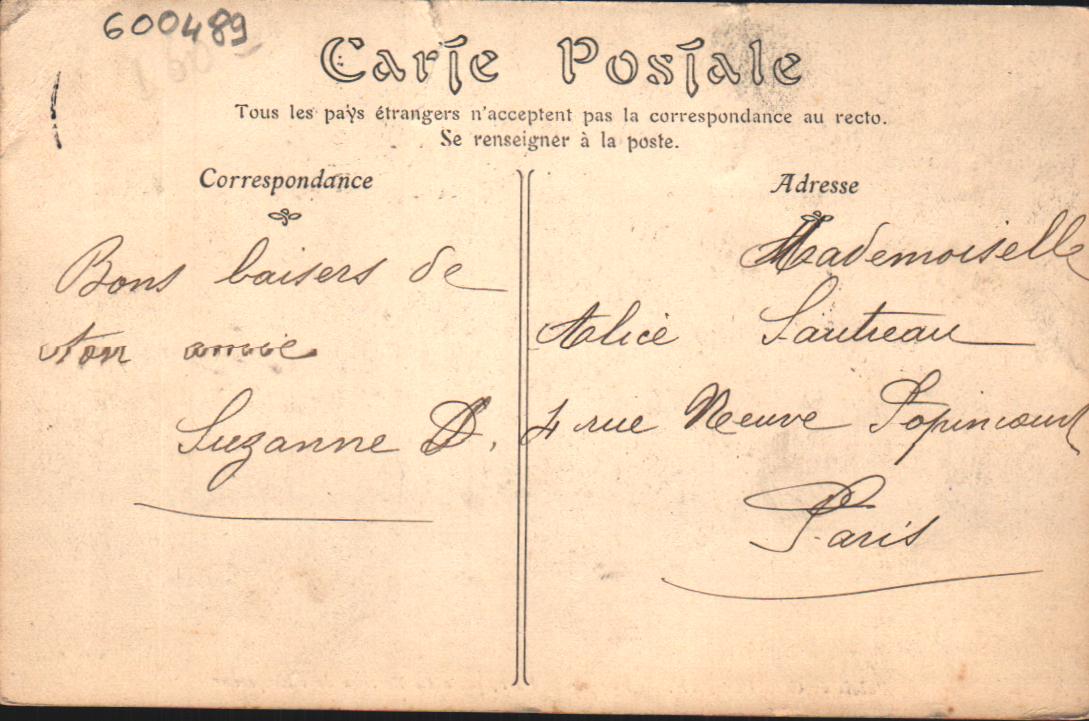 600489
Carte Postale
Tous les pays étrangers n'acceptent pas la correspondance au recto.
Se renseigner à la poste.
Correspondance
Bons baisers de
ton amie
Suzanne D.
Adresse
Mademoiselle
Alice Sautreau
4 rue Neuve Popincourt
Paris